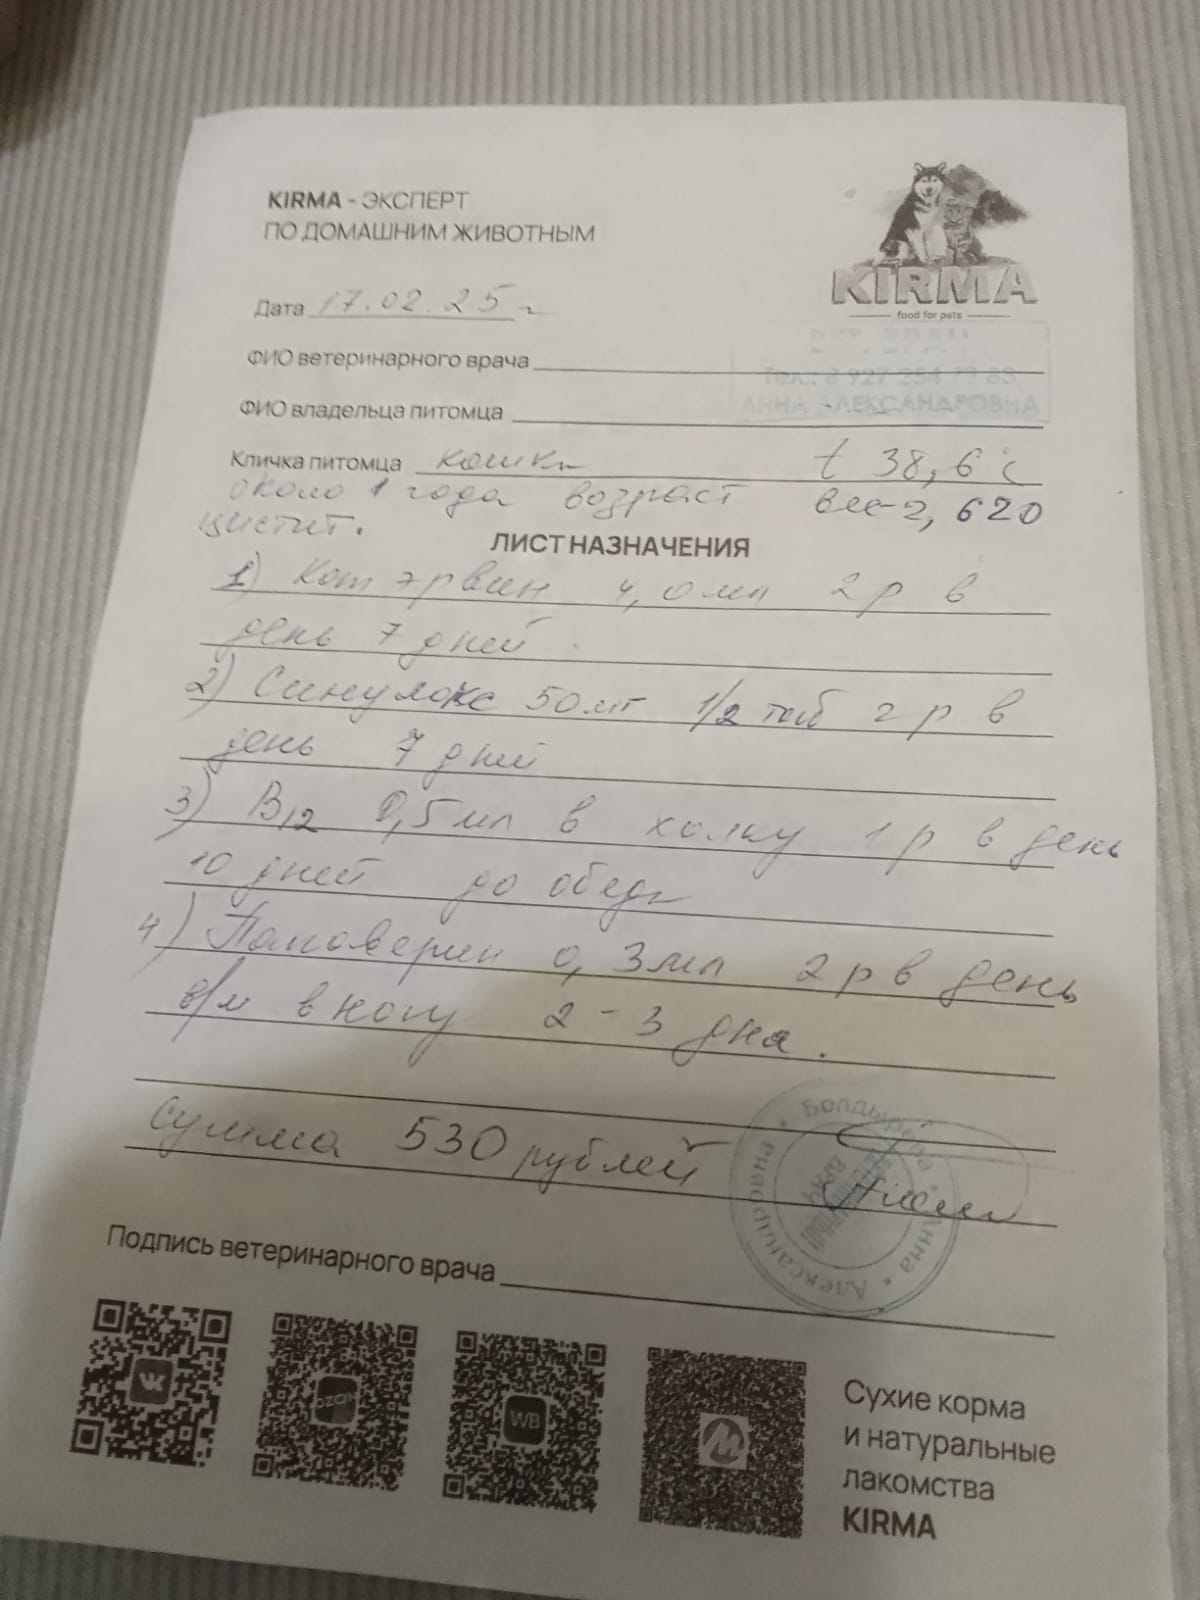 KIRMA - ЭКСПЕРТ
ПО ДОМАШНИМ ЖИВОТНЫМ
KIRMA
food for pets
Дата 17.02.25г
ФИО ветеринарного врача
Тел.: 8 927 254 79 83
ФИО владельца питомца
АННА АЛЕКСАНДРОВНА
Кличка питомца кошка t 38,6°C
около 1 года возраст вес-2,620
цистит.
ЛИСТ НАЗНАЧЕНИЯ
1) Кот эрвин 4,0 мл 2 р в
день 7 дней.
2) Синулокс 50 мг 1/2 таб 2 р в
день 7 дней
3) В12 0,5 мл в холку 1 р в день
10 дней до обеда
4) Папаверин 0,3 мл 2 р в день
в/м в ногу 2-3 дня.
сумма 530 рублей
Болдырева Анна Александровна
ВРАЧ
Подпись ветеринарного врача
OZON
WB
Сухие корма
и натуральные
лакомства
KIRMA